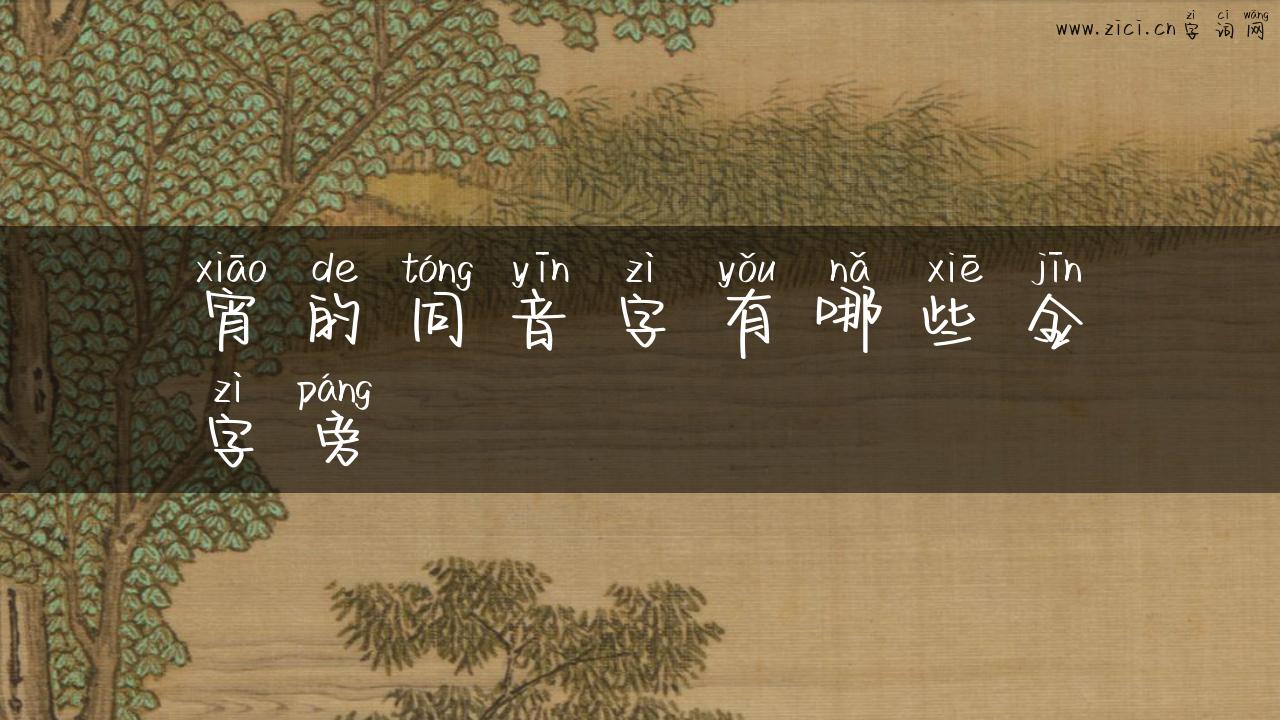 zì cí wǎng
www.zici.cn字词网
xiāo de tóng yīn zì yǒu nǎ xiē jīn
宵的同音字有哪些金
zì páng
字旁